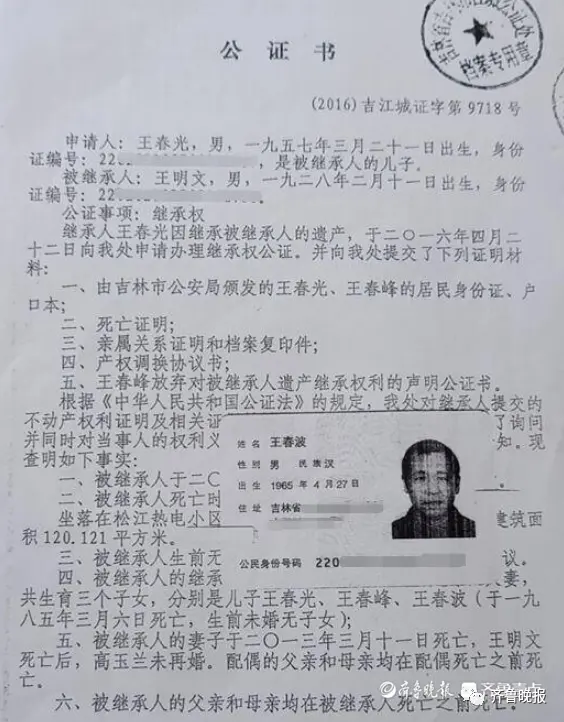 公证书
(2016)吉江城证字第9718号
申请人：王春光，男，一九五七年三月二十一日出生，身份
证编号：220 ，是被继承人的儿子。
被继承人：王明文，男，一九二八年二月十一日出生，身份
证编号：
公证事项：继承权
继承人王春光因继承被继承人的遗产，于二〇一六年四月二
十二日向我处申请办理继承权公证。并向我处提交了下列证明材
料：
一、由吉林市公安局颁发的王春光、王春峰的居民身份证、户
口本；
二、死亡证明；
三、亲属关系证明和档案复印件；
四、产权调换协议书；
五、王春峰放弃对被继承人遗产继承权利的声明公证书。
根据《中华人民共和国公证法》的规定，我处对继承人提交的
不动产权利证明及相关证 了询问
并同时对当事人的权利义 知。现
查明如下事实：
一、被继承人于二〇
二、被继承人死亡时
坐落在松江热电小区 建筑面
积120.121平方米。
三、被继承人生前无 议。
四、被继承人的继承 妻，
共生育三个子女，分别是儿子王春光、王春峰、王春波（于一九
八五年三月六日死亡，生前未婚无子女）；
五、被继承人的妻子于二〇一三年三月十一日死亡，王明文
死亡后，高玉兰未再婚。配偶的父亲和母亲均在配偶死亡之前死
亡。
六、被继承人的父亲和母亲均在被继承人死亡之前死亡。
姓名 王春波
性别 男 民族 汉
出生 1965年4月27日
住址 吉林省
公民身份号码 220
档案专用章
齐鲁晚报
齐鲁壹点
齐鲁晚报